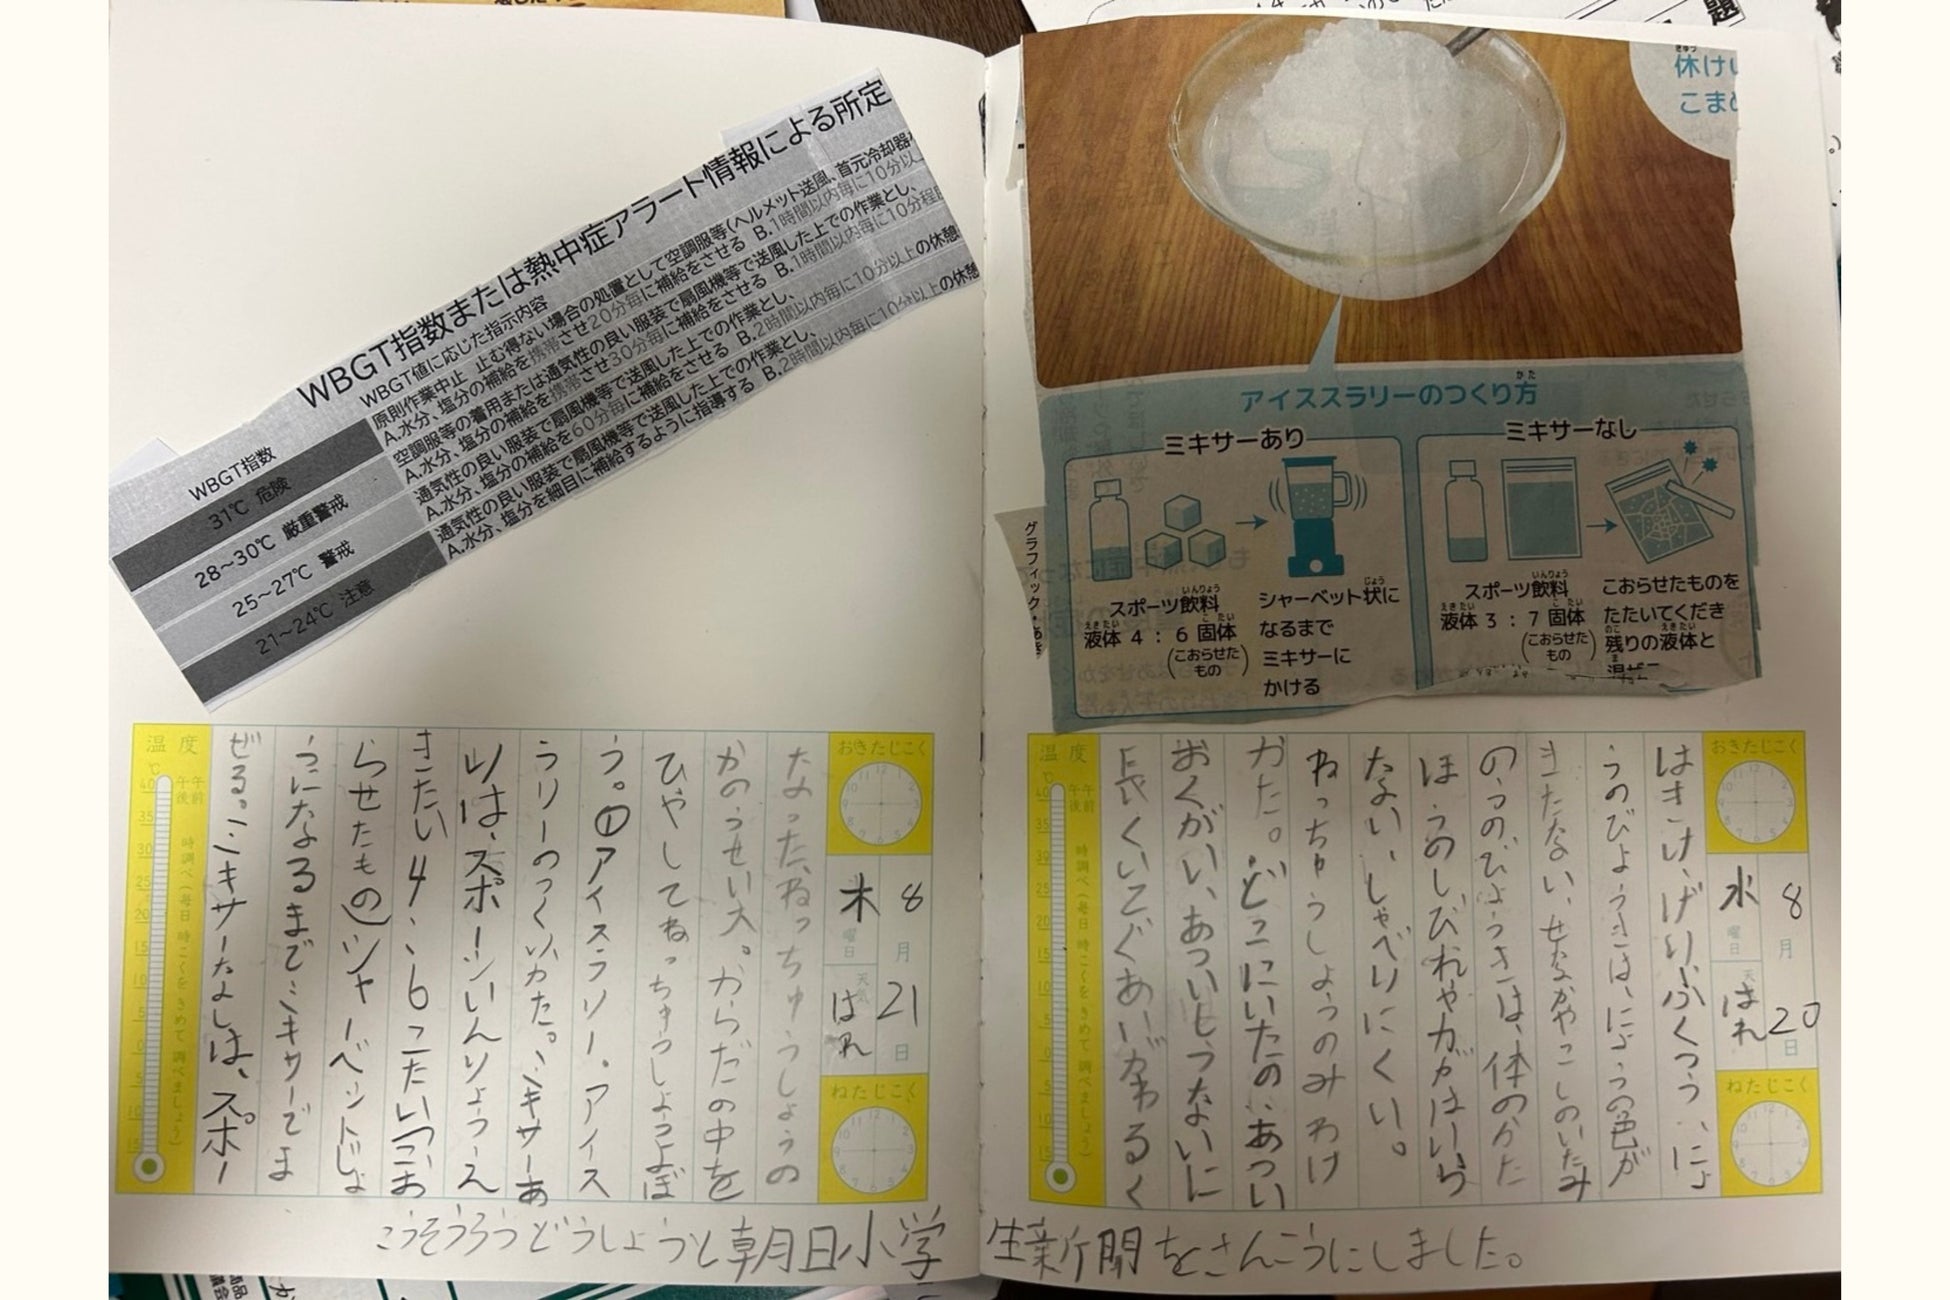 WBGT指数または熱中症アラート情報による所定
WBGT指数
WBGT値に応じた指示内容
31℃ 危険
原則作業中止 止む得ない場合の処置として空調服等(ヘルメット送風、首元冷却器
A.水分、塩分の補給を携帯させ20分毎に補給をさせる B.1時間以内毎に10分以
28～30℃ 厳重警戒
空調服等の着用または通気性の良い服装で扇風機等で送風した上での作業とし、
A.水分、塩分の補給を携帯させ30分毎に補給をさせる B.1時間以内毎に10分程度
25～27℃ 警戒
通気性の良い服装で扇風機等で送風した上での作業とし、
A.水分、塩分の補給を60分毎に補給をさせる B.2時間以内毎に10分以上の休憩
21～24℃ 注意
通気性の良い服装で扇風機等で送風した上での作業とし、
A.水分、塩分を細目に補給するように指導する B.2時間以内毎に10分以上の休憩
休けい
こまめ
アイススラリーのつくり方
ミキサーあり
スポーツ飲料
液体 4 : 6 固体
(こおらせたもの)
シャーベット状に
なるまで
ミキサーに
かける
ミキサーなし
スポーツ飲料
液体 3 : 7 固体
(こおらせたもの)
こおらせたものを
たたいてくだき
残りの液体と
グラフィック・
おきたじこく
8月
20日
水曜日
天気 はれ
ねたじこく
はきけ、げり、ふくつう、にょ
うのびょうきは、にょうの色が
きたない、せなかやこしのいたみ
のうのびょうきは、体のかた
ほうのしびれやカがはいら
ない、しゃべりにくい。
ねっちゅうしょうのみわけ
かた。どこにいたの、あつい
おくがい、あついしつないに
長くいてぐあいがわるく
温度
℃
午前
午後
時調べ(毎日 時こくを きめて 調べましょう)
40
35
30
25
20
15
10
5
0
5
10
15
おきたじこく
8月
21日
木曜日
天気 はれ
ねたじこく
なった、ねっちゅうしょうの
かのうせい大。からだの中を
ひやしてねっちゅうしょうよぼ
う。①アイスラリー。アイス
ラリーのつくりかた。ミキサーあ
りは、スポーツいんりょうえ
きたい4:6こたい(こお
らせたもの)シャーベットじょ
うになるまでミキサーでま
ぜる。ミキサーなしは、スポー
温度
℃
午前
午後
時調べ(毎日 時こくを きめて 調べましょう)
40
35
30
25
20
15
10
5
0
5
10
15
こうそうろうどうしょうと朝日小学生新聞をさんこうにしました。